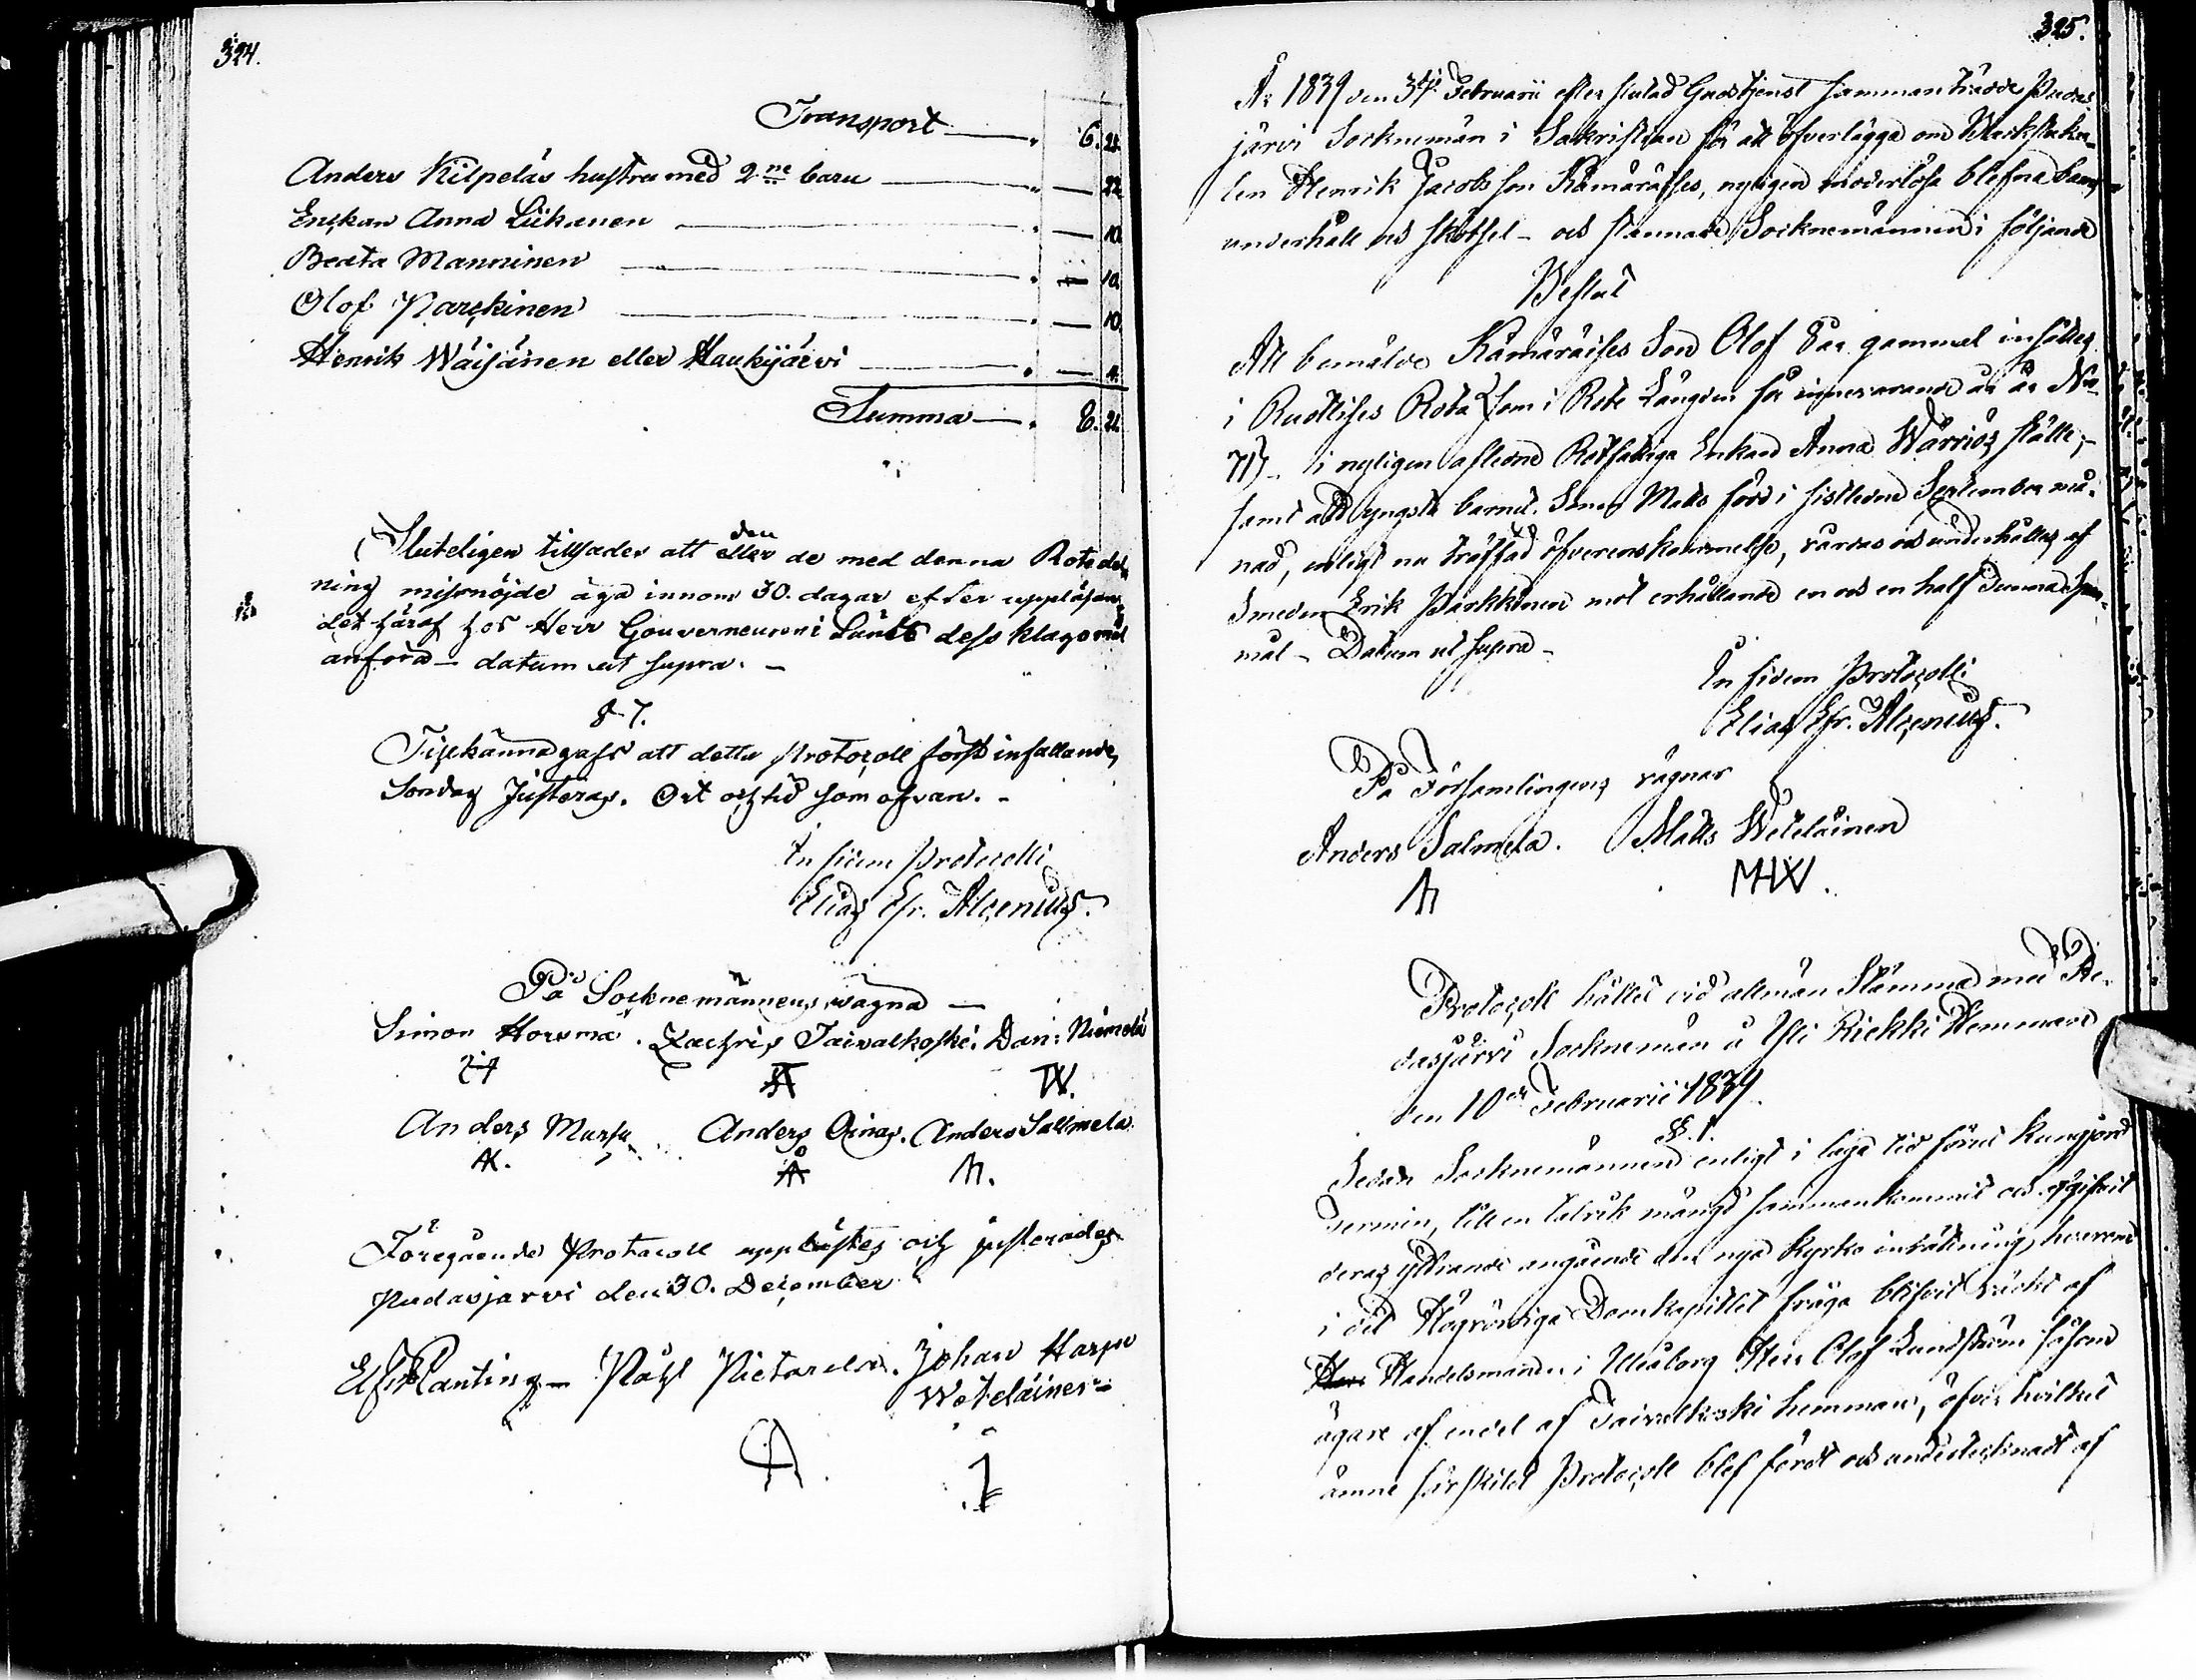 324.
Transport — " 6. 24.
Anders Kilpeläs hustru med 2ne barn — " — 22.
Enkan Anna Liikanen — " — 10.
Beata Manninen — " — 10.
Olof Parckinen — " — 10.
Henrik Wäisänen eller Haukijärvi — " — 4.
Summa — " 8. 21.
Sluteligen tillsades att den eller de med denna Rotedel-
ning missnöjde äga innom 30. dagar efter uppläsan-
det häraf hos Herr Gouverneuren i Länet dess klagomål
anföra — datum ut supra. —
§ 7.
Tillkännagafs att detta Protocoll först infallande
Söndag Justeras. Ort och tid som ofvan. —
In fidem Protocolli
Elias Efr. Alcenius.
På Socknemännens vägna —
Simon Horsma. Zachris Taivalkoski. Dan: Niemelä
Anders Mursu. Anders Oinas. Anders Sallmela.
Föregående Protocoll upplästes och justerades
Pudasjarvi den 30. December
Planting — Påhl Pietarila. Johan Harju
Weteläinen —
325.
År 1839 den 3dje Februarii efter slutad Gudstjenst sammanträdde Pudas-
järvi Socknemän i Sakristian för att öfverlägga om
Henrik Jacobsson Kämäräises, nyligen moderlösa blefna barns
underhåll och skötsel — och stannade Socknemännen i följande
Beslut
Att bemälde Kämäräises Son Olof 8 år gammal införes
i Ruottises Rota (som i Rote Längden för innevarande år är No
71) — i nyligen aflidne Rotfattiga Enkan Anna Wärriös ställe, —
samt att yngsta barnet Sonen Matts född i sistledne September må-
nad, enligt nu träffad öfverenskommelse, vårdas och underhålles af
Smeden Erik Parkkinen mot erhållande en och en half Tunna Span-
mål — Datum ut supra —
In fidem Protocolli
Elias Efr. Alcenius.
På Församlingens vägnar
Anders Salmela. Matts Weteläinen
MHW.
Protocoll hållet vid allmän Stämma med Pu-
dasjärvi Socknemän å Yli Riekki Hemman
den 10de Februarii 1839.
§. 1.
Sedan Socknemännen enligt i laga tid förut kungjord
Termin, till en talrik mängd sammankommit och afgifvit
deras yttrande angående den nya Kyrko inrättning, hvarom
i det Högvördiga Domkapitlet fråga blifvit väckt af
Handelsmanden i Uleåborg Herr Olof Lundström såsom
ägare af en del af Taivalkoski hemman, öfver hvilket
ämne särskildt Protocoll blef fördt och undertecknadt af